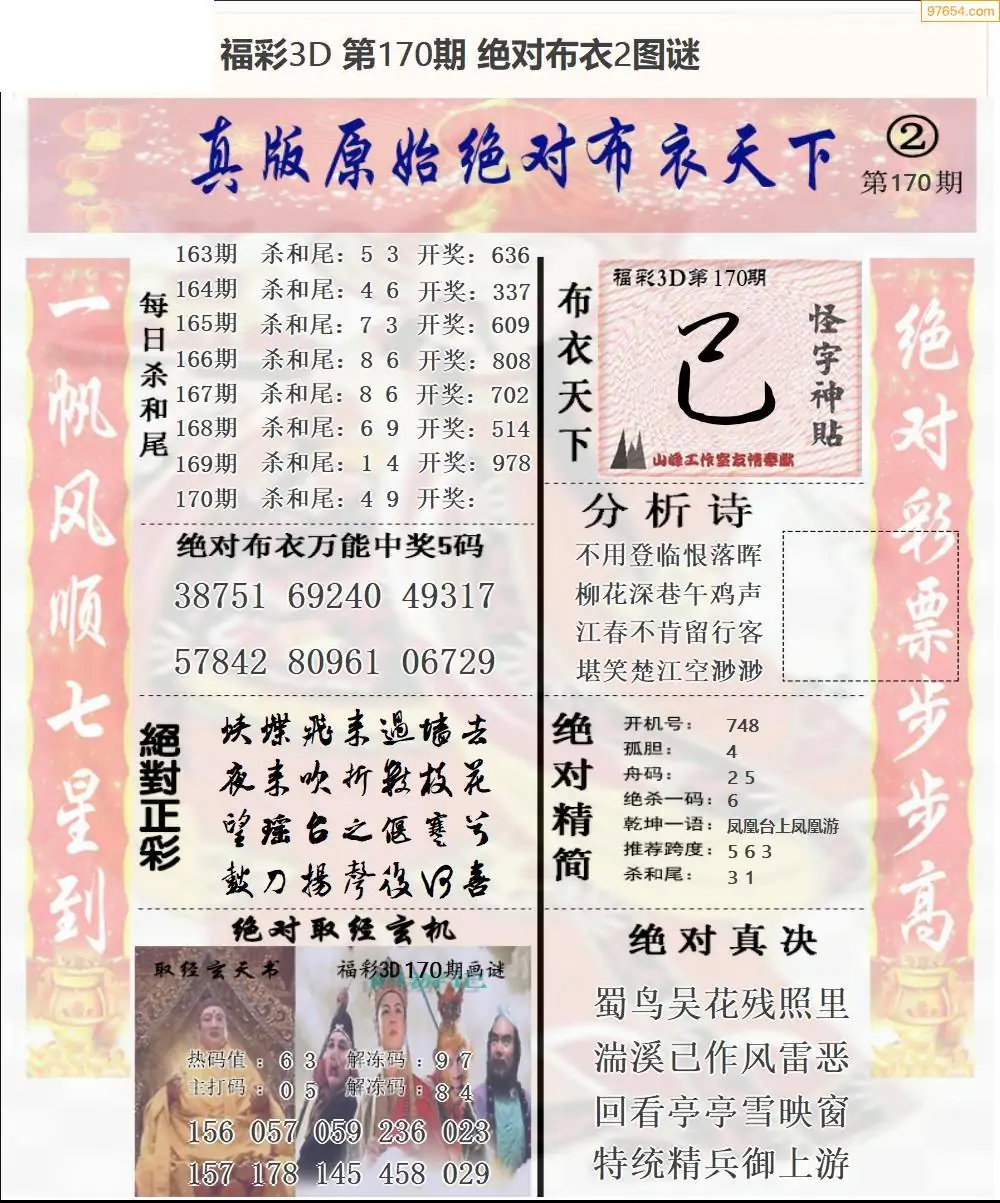 97654.com
福彩3D 第170期 绝对布衣2图谜
真版原始绝对布衣天下
②
第170期
一帆风顺七星到
每日杀和尾
163期 杀和尾：5 3 开奖：636
164期 杀和尾：4 6 开奖：337
165期 杀和尾：7 3 开奖：609
166期 杀和尾：8 6 开奖：808
167期 杀和尾：8 6 开奖：702
168期 杀和尾：6 9 开奖：514
169期 杀和尾：1 4 开奖：978
170期 杀和尾：4 9 开奖：
绝对布衣万能中奖5码
38751 69240 49317
57842 80961 06729
絕對正彩
蛱蝶飛来過墙去
夜来吹折數枝花
望瑶台之偃蹇兮
鼓刀揚聲復何喜
绝对取经玄机
取经玄天书
福彩3D170期画谜
热码值：6 3 解冻码：9 7
主打码：0 5 解冻码：8 4
156 057 059 236 023
157 178 145 458 029
布衣天下
福彩3D第170期
己
怪字神贴
山峰工作室友情奉献
分析诗
不用登临恨落晖
柳花深巷午鸡声
江春不肯留行客
堪笑楚江空渺渺
绝对精简
开机号：748
孤胆：4
舟码：2 5
绝杀一码：6
乾坤一语：凤凰台上凤凰游
推荐跨度：5 6 3
杀和尾：3 1
绝对真决
蜀鸟吴花残照里
湍溪己作风雷恶
回看亭亭雪映窗
特统精兵御上游
绝对彩票步步高